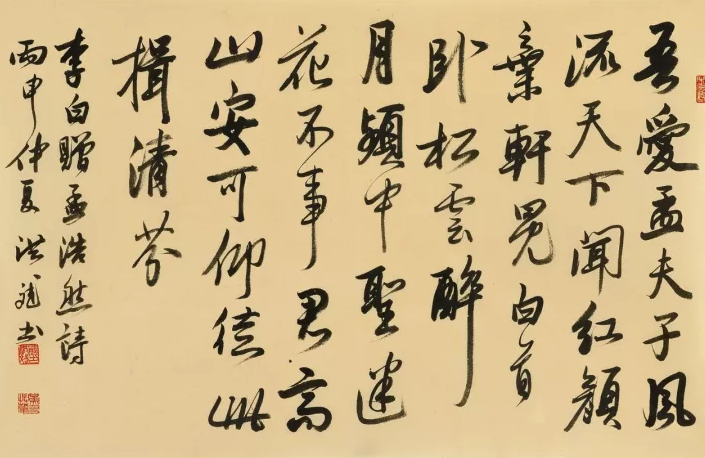 吾愛孟夫子風
流天下聞紅顏
棄軒冕白首
卧松雲醉
月頻中聖迷
花不事君高
山安可仰徒此
揖清芬
李白贈孟浩然詩
丙申仲夏洪書